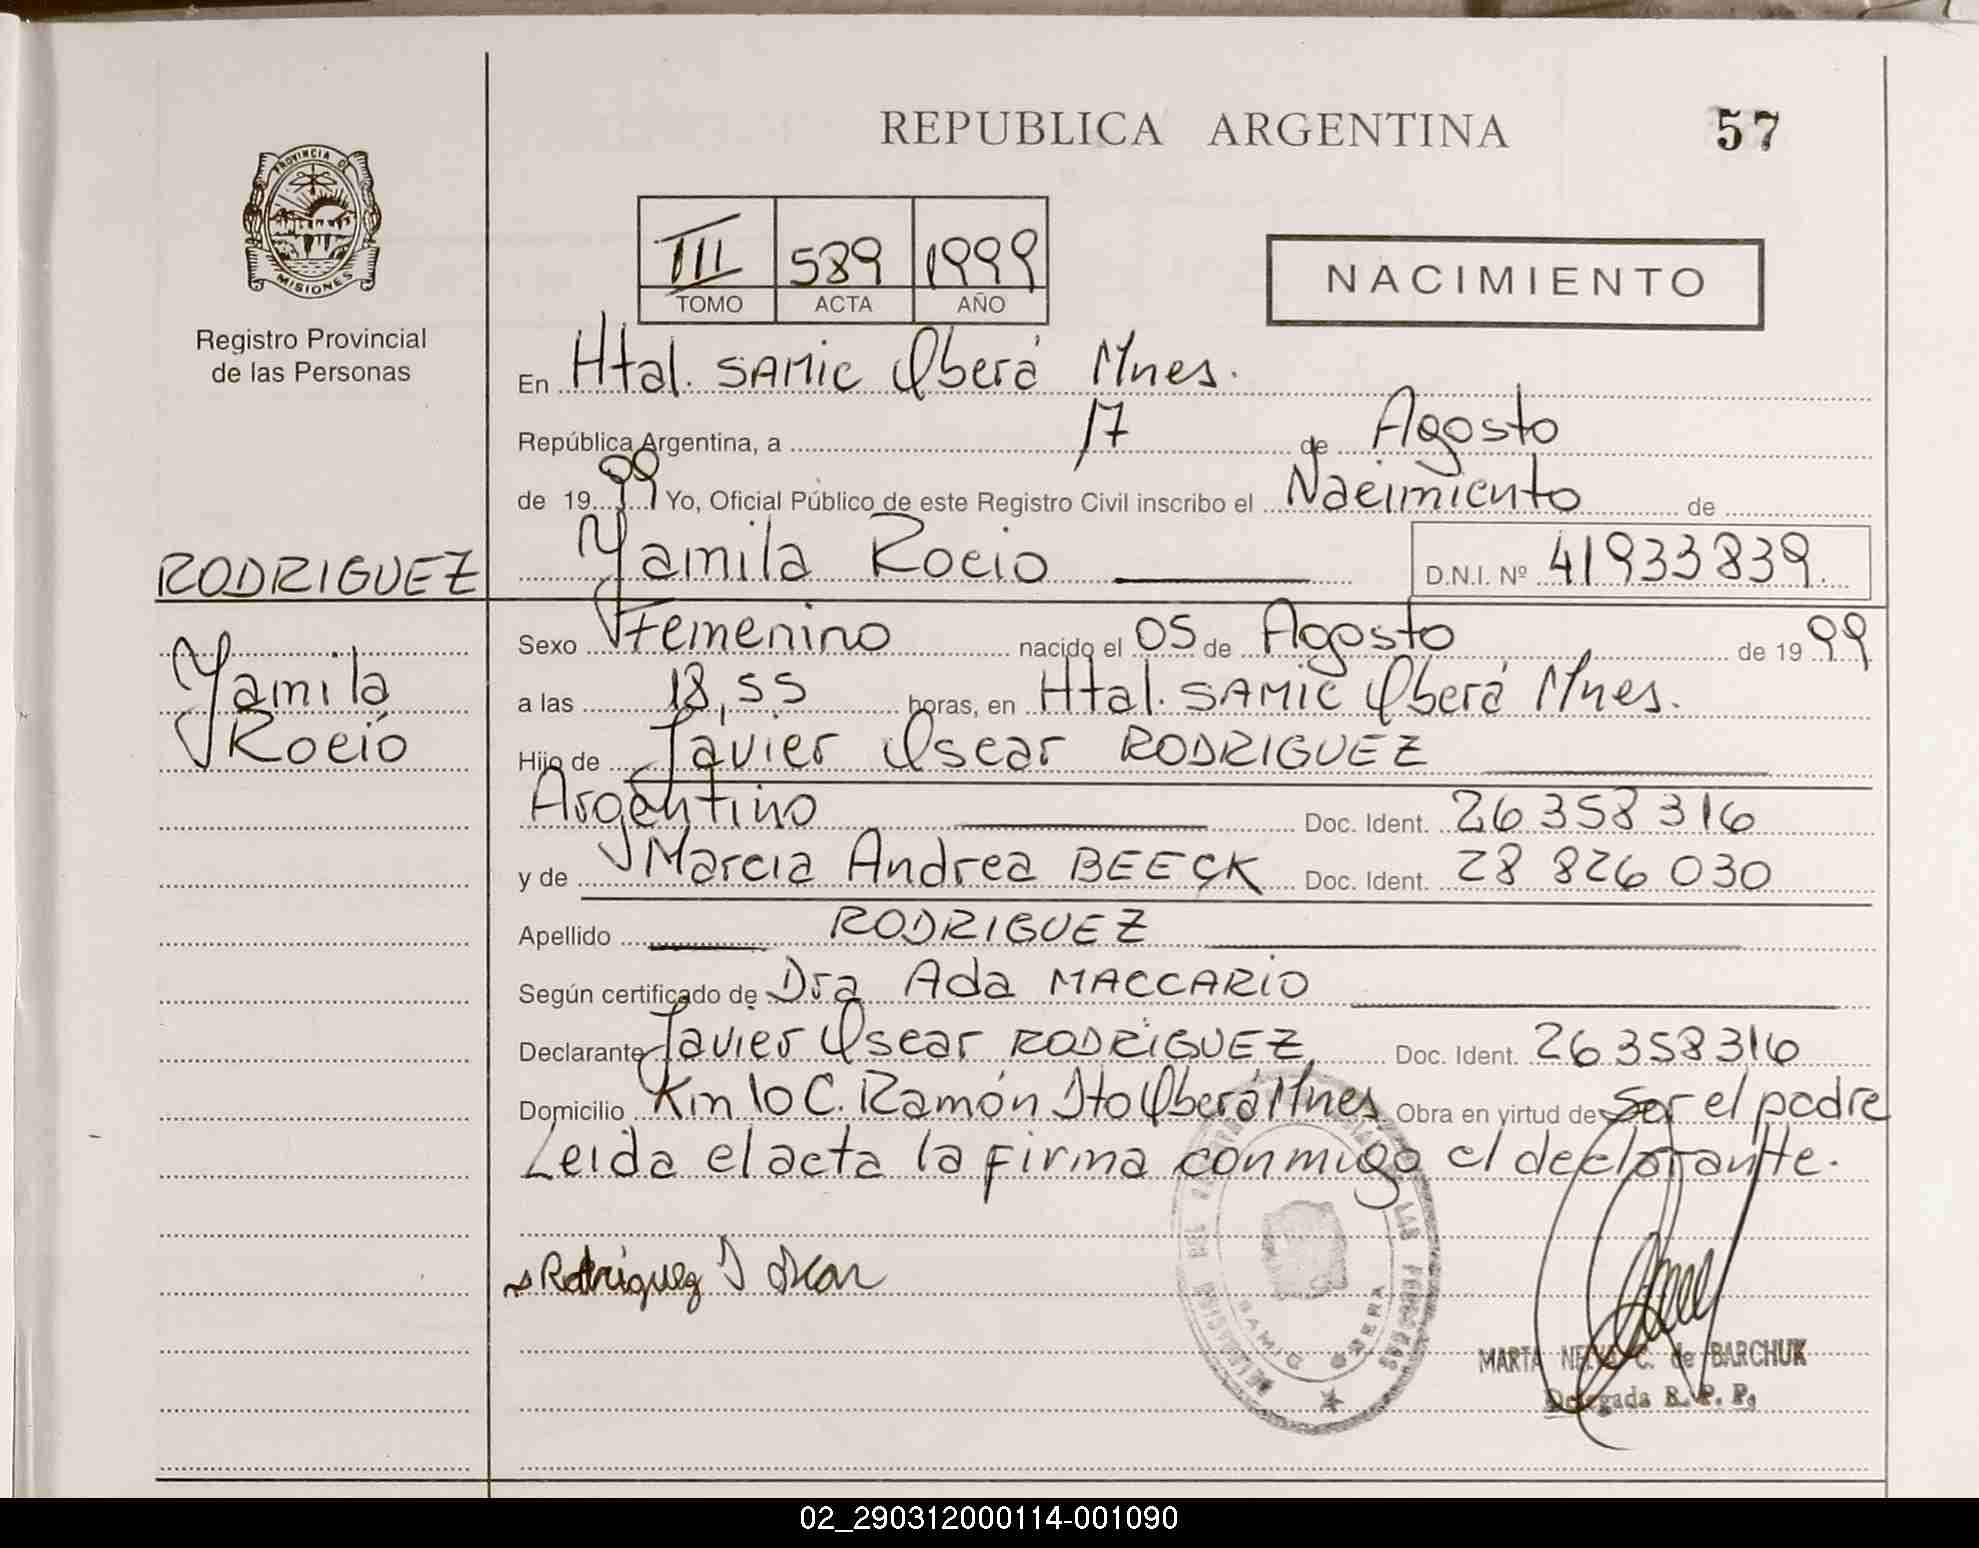 REPUBLICA ARGENTINA
57
PROVINCIA D
MISIONES
Registro Provincial
de las Personas
III 589 1999
TOMO ACTA AÑO
NACIMIENTO
En Htal. SAMIC Oberá Mnes.
República Argentina, a 17 de Agosto
de 1999 Yo, Oficial Público de este Registro Civil inscribo el Nacimiento de
Yamila Rocio D.N.I. Nº 41933839.
RODRIGUEZ
Yamila
Rocío
Sexo Femenino nacido el 05 de Agosto de 1999
a las 18,55 horas, en Htal. SAMIC Oberá Mnes.
Hijo de Javier Oscar RODRIGUEZ
Argentino Doc. Ident. 26 358 316
y de Marcia Andrea BEECK Doc. Ident. 28 826 030
Apellido RODRIGUEZ
Según certificado de Dra Ada MACCARIO
Declarante Javier Oscar RODRIGUEZ, Doc. Ident. 26358316
Domicilio Km 10 C. Ramón Sto Oberá Mnes Obra en virtud de ser el padre
Leida el acta la firma conmigo el declarante.
Rodriguez J Oscar
SAMIC OBERA
MARTA NELVA C. de BARCHUK
Delegada R. P. P.
02_290312000114-001090